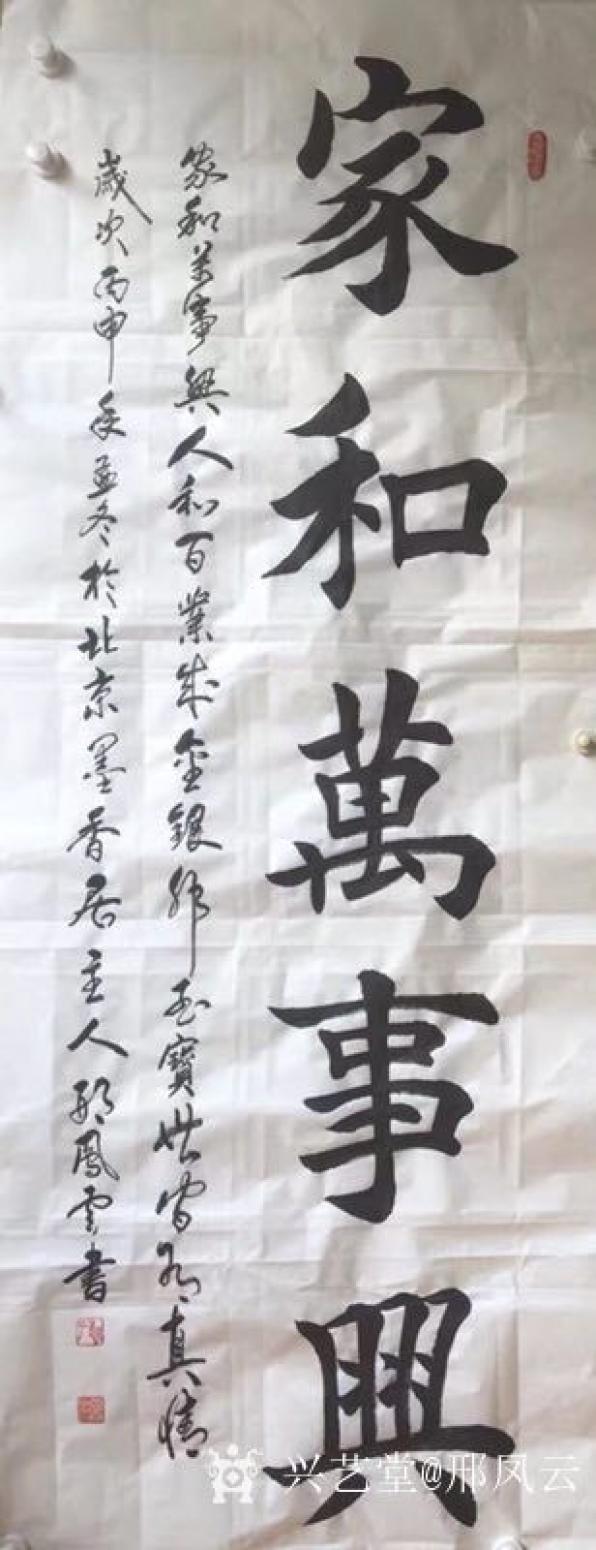 家和萬事興
家和萬事興人和百業成金銀非至寶世家有真情
歲次丙申年孟冬於北京墨香居主人邢鳳雲書
兴艺堂@邢凤云